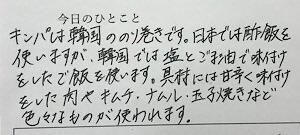 今日のひとこと
キンパは韓国ののり巻きです。日本では酢飯を
使いますが、韓国では塩とごま油で味付け
をしたご飯を使います。具材には甘辛く味付け
をした肉やキムチ・ナムル・玉子焼きなど
色々なものが使われます。